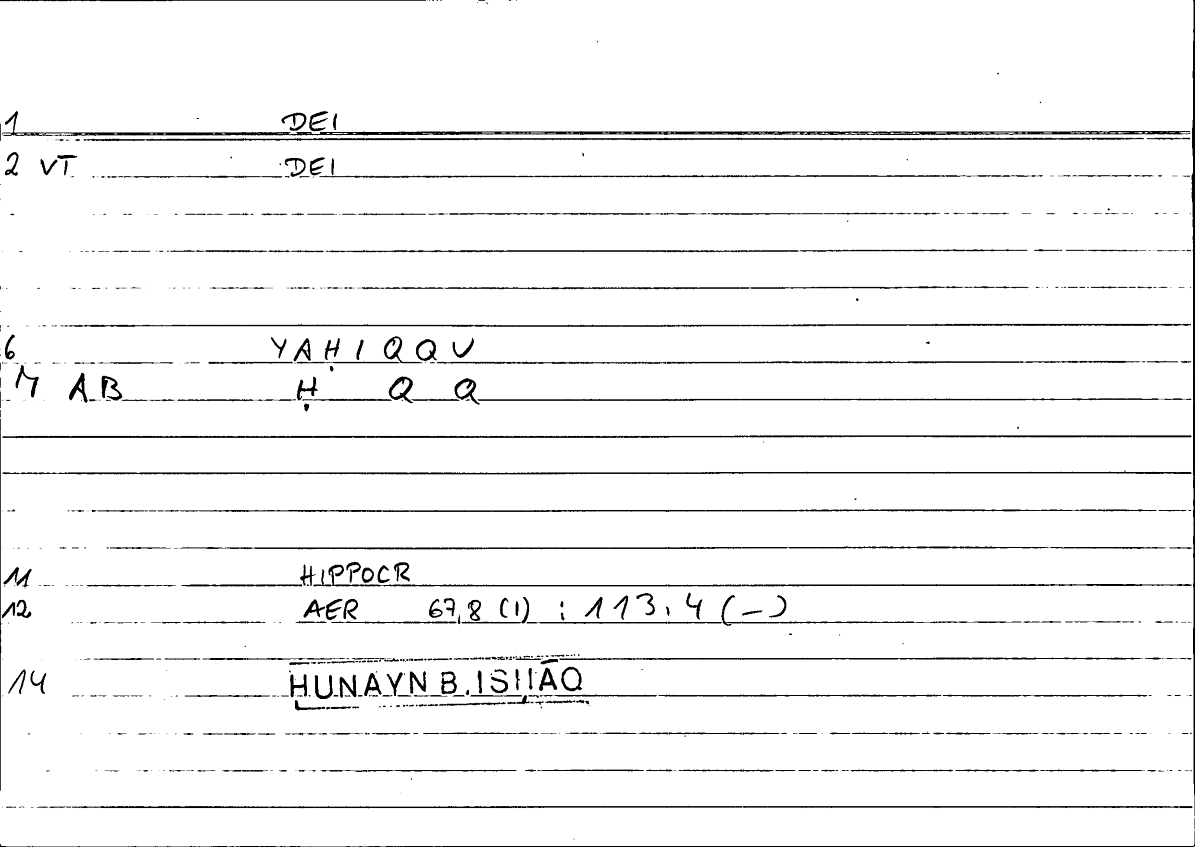 1 DEI
2 VT DEI
6 YAḤIQQU
7 AB Ḥ Q Q
11 HIPPOCR
12 AER 67,8 (1) : 113,4 (–)
14 ḤUNAYN B. ISḤĀQ